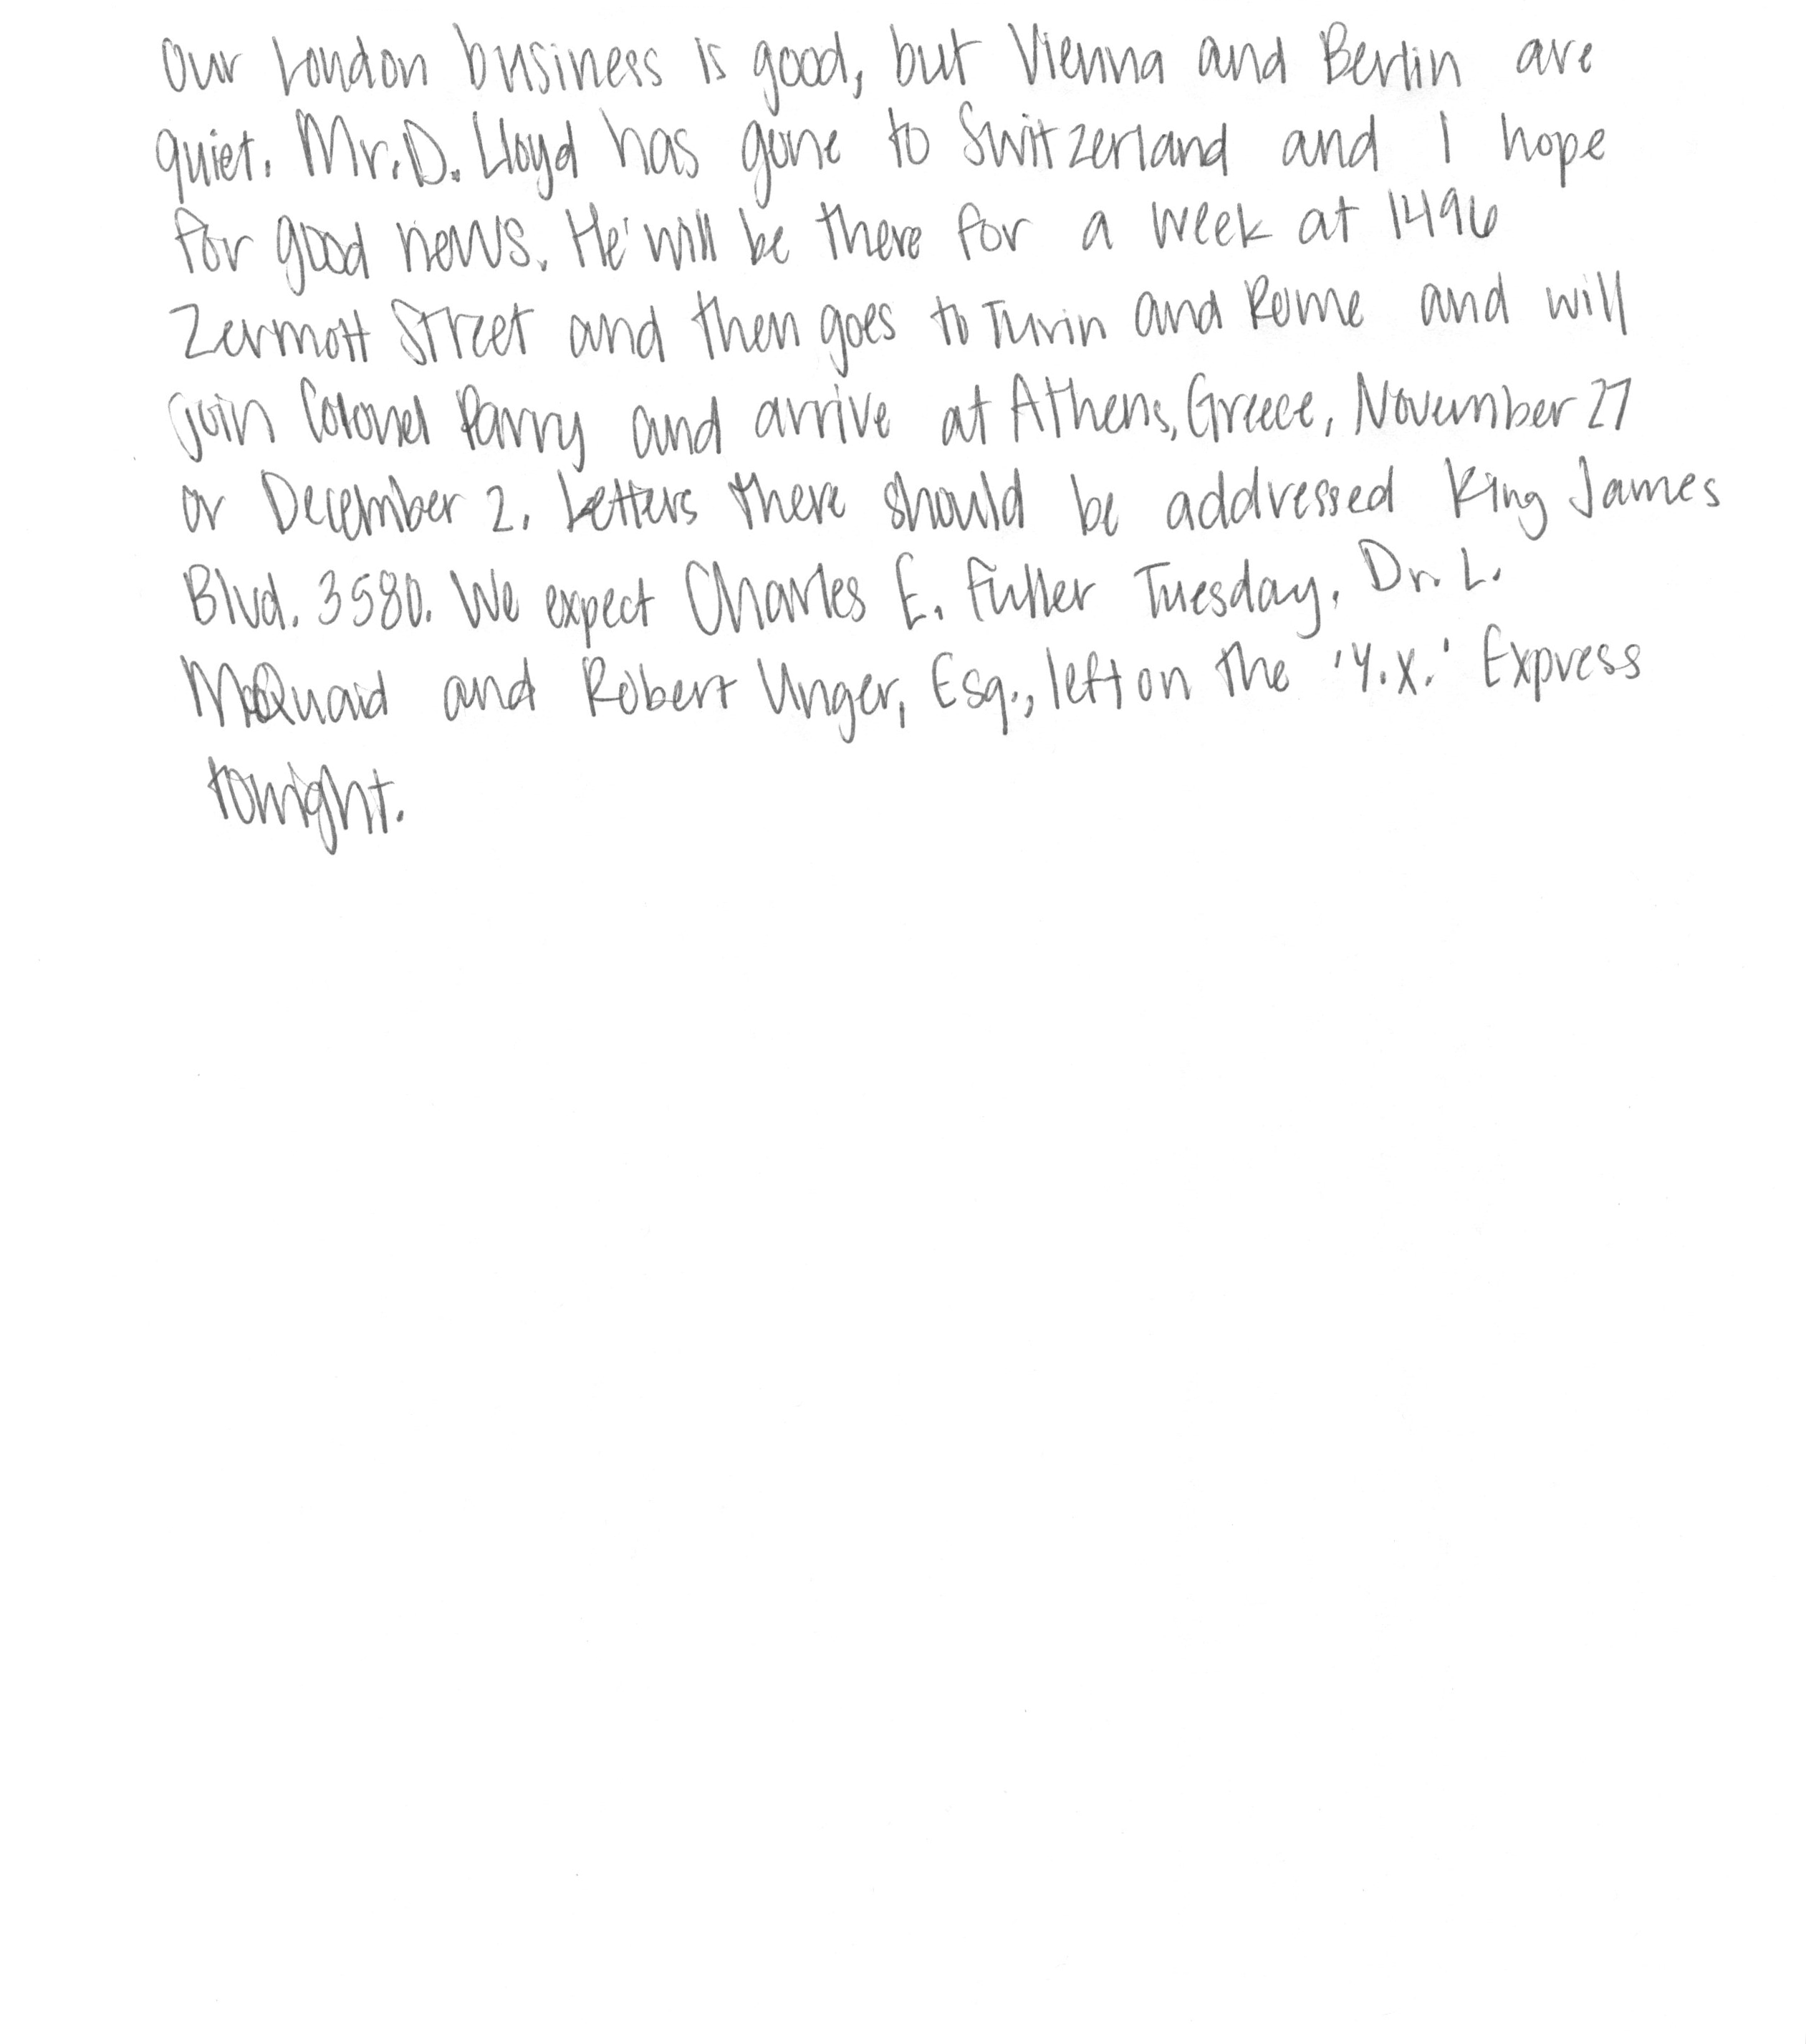 Our London business is good, but Vienna and Berlin are
quiet. Mr. D. Lloyd has gone to Switzerland and I hope
for good news. He will be there for a week at 1496
Zermott Street and then goes to Turin and Rome and will
join Colonel Parry and arrive at Athens, Greece, November 27
or December 2. Letters there should be addressed King James
Blvd. 3580. We expect Charles E. Fuller Tuesday. Dr. L.
McQuaid and Robert Unger, Esq., left on the 'Y.X.' Express
tonight.